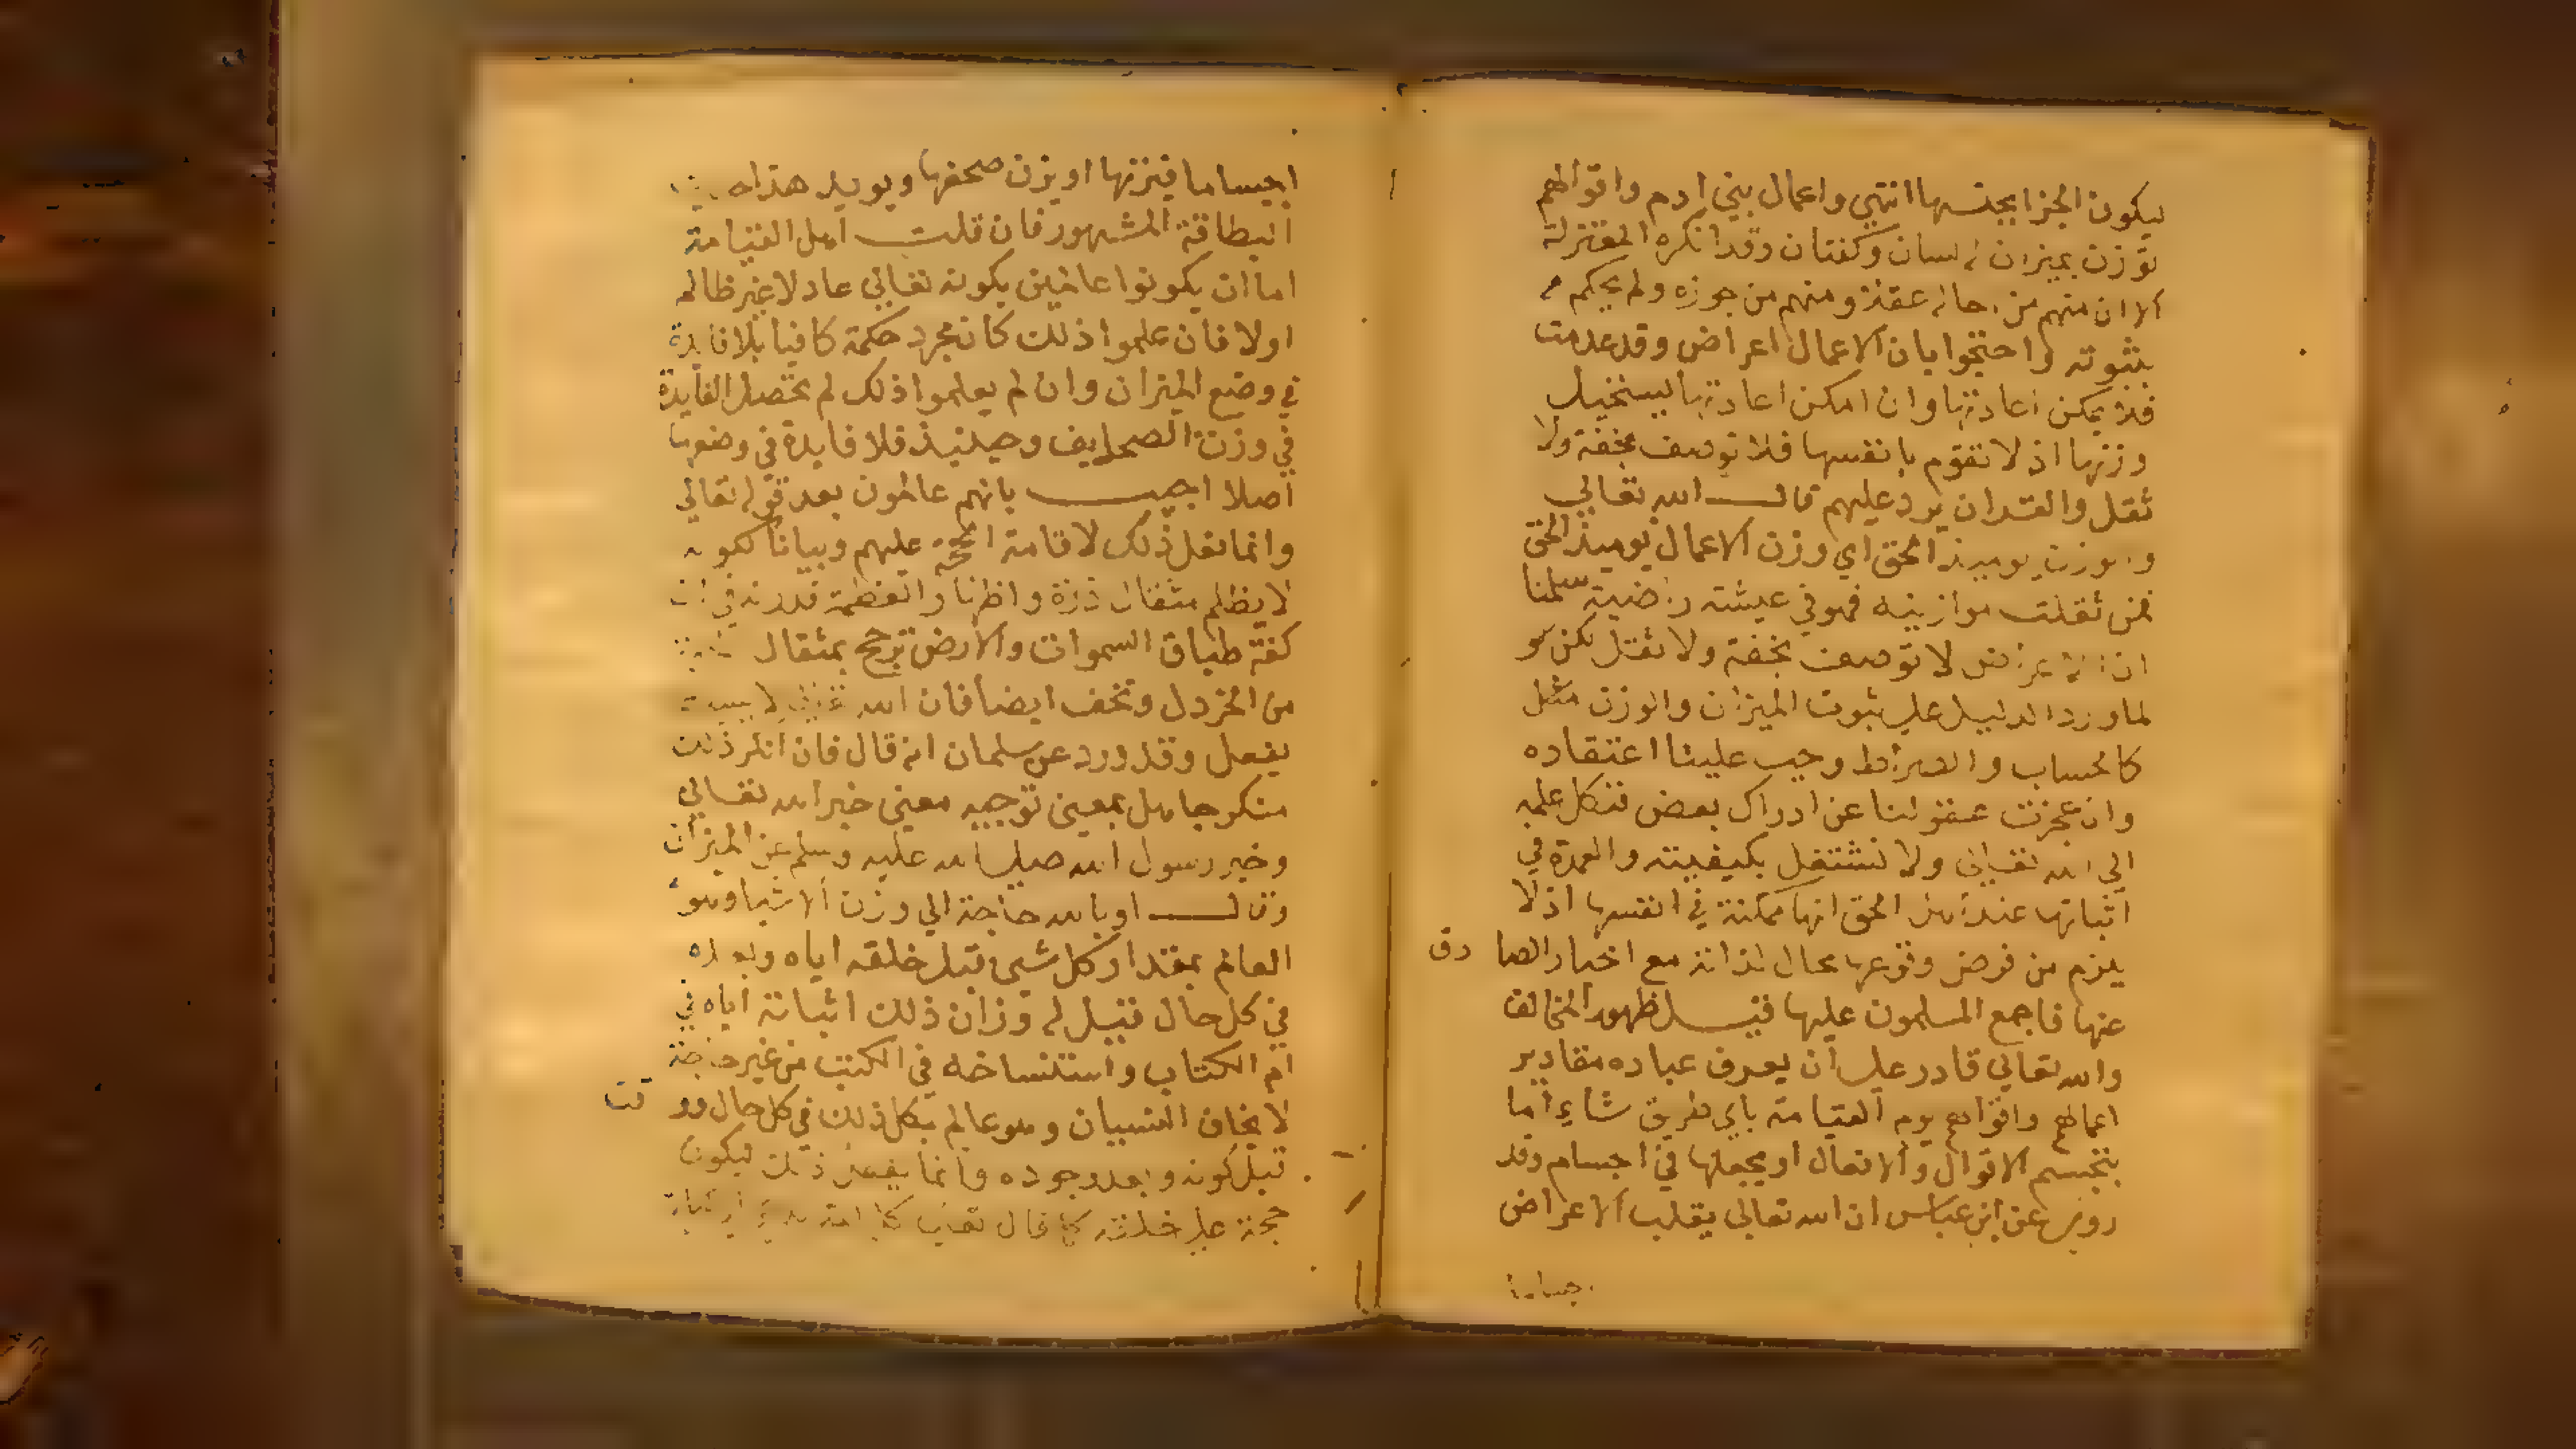 ليكون الجزا بجنسها انتهي واعمال بني ادم واقوالهم
توزن بميزان له لسان وكفتان وقد انكره المعتزلة
الا ان منهم من احاله عقلا ومنهم من جوزه ولم يحكم
بثبوته واحتجوا بان الاعمال اعراض وقد عدمت
فلا يمكن اعادتها وان امكن اعادتها يستحيل
وزنها اذ لا تقوم بانفسها فلا توصف بخفة ولا
ثقل والقران يرد عليهم قال الله تعالي
والوزن يوميذ الحق اي وزن الاعمال يوميذ الحق
فمن ثقلت موازينه فهو في عيشة راضية سلمنا
ان الاعراض لا توصف بخفة ولا بثقل لكن
لما ورد الدليل علي ثبوت الميزان والوزن مثل
كالحساب والصراط وجب علينا اعتقاده
وان عجزت عقولنا عن ادراك بعض فنكل علمه
الي الله تعالي ولا نشتغل بكيفيته والعمدة في
اثباتها عند اهل الحق انها ممكنة في انفسها اذ لا
يلزم من فرض وقوعها محال لذاته مع اخبار الصادق
عنها فاجمع المسلمون عليها قبل ظهور المخالف
والله تعالي قادر علي ان يعرف عباده مقادير
اعمالهم واقوالهم يوم القيامة باي طريق شاء اما
بتجسم الاقوال والافعال او يجعلها في اجسام وقد
روي عن ابن عباس ان الله تعالي يقلب الاعراض
اجساما فيزنها او يزن صحفها ويويد هذا
البطاقة المشهور فان قلت اهل القيامة
اما ان يكونوا عالمين بكونه تعالي عادلا غير ظالم
اولا فان علموا ذلك كان مجرد حكمه كافيا فلا فايدة
في وضع الميزان وان لم يعلموا ذلك لم تحصل الفايدة
في وزن الصحايف وحينيذ فلا فايدة في وضعها
اصلا اجيب بانهم عالمون بعد قوله تعالي
وانما فعل ذلك لاقامة الحجة عليهم وبيانا لكونه
لا يظلم مثقال ذرة واظهار العظمة قدرته في ان
كفة طباق السموات والارض ترجح بمثقال
من الخردل وتخف ايضا فان الله
يفعل وقد ورد عن سلمان انه قال فان انكر ذلك
منكر جاهل بمعني توجيه معني خبر الله تعالي
وخبر رسول الله صلي الله عليه وسلم عن الميزان
وقال او بالله حاجة الي وزن الاشيا وهو
العالم بمقدار كل شي قبل خلقه اياه وبعده
في كل حال قيل له وزان ذلك اثباته اياه في
ام الكتاب واستنساخه في الكتب من غير حاجة
لا يخاف النسيان وهو عالم بكل ذلك في كل حال ووقت
قبل كونه وبعد وجوده وانما يفعل ذلك ليكون
حجة علي خلقه كما قال تعالي